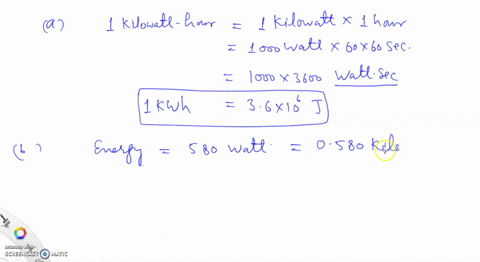 (a) 1 Kilowatt-hour = 1 Kilowatt × 1 hour
= 1000 Watt × 60×60 Sec.
= 1000 × 3600 Watt.sec
1 KWh = 3.6×10⁶ J
(b) Energy = 580 Watt = 0.580 Kilo
SCREENCAST MATIC